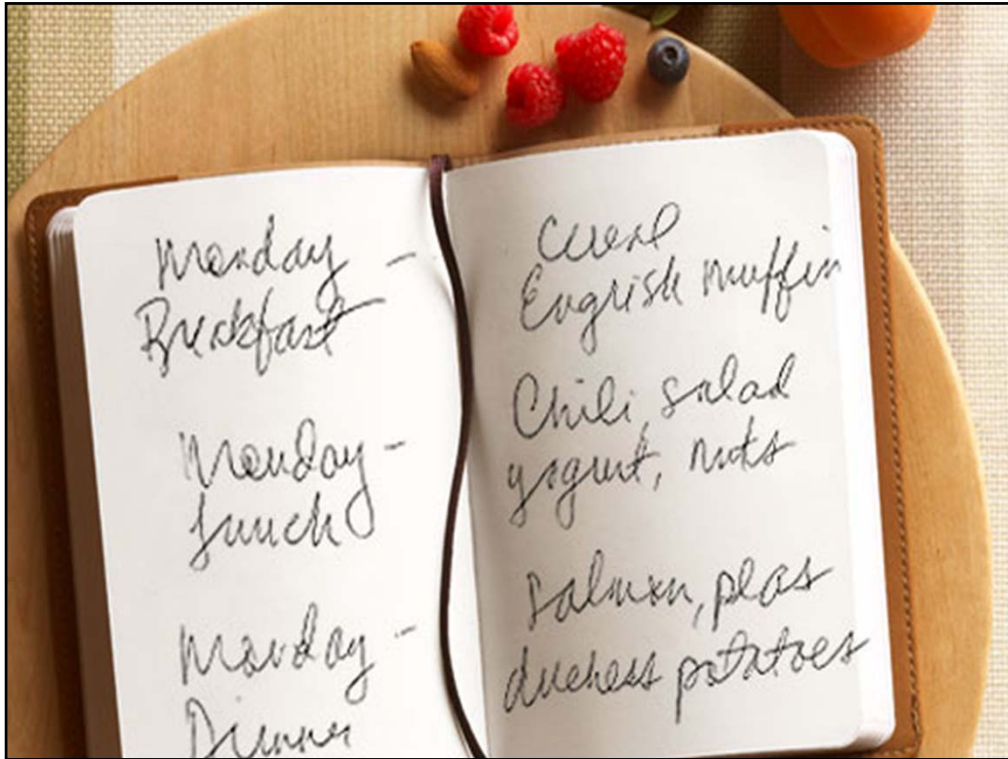 Monday -
Breakfast
Monday -
Lunch
Monday -
Dinner
Cereal
English muffin
Chili, salad
yogurt, nuts
Salmon, peas
duchess potatoes